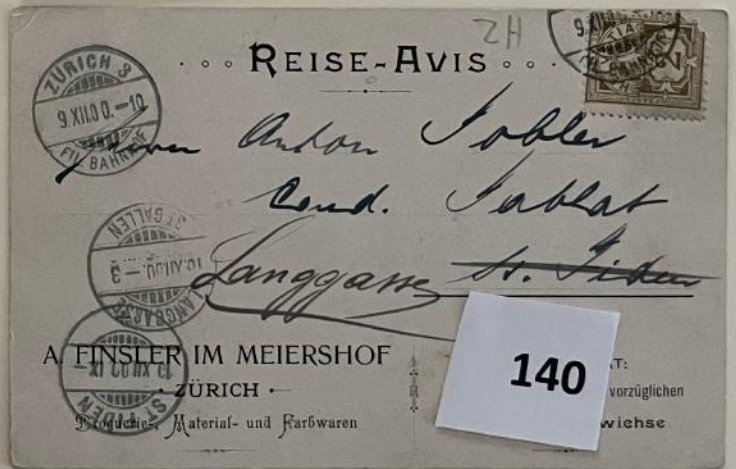 ZH
REISE-AVIS
ZÜRICH 3
9.XII.00.-10
FIL. BAHNHOF
9.XII.00
Herrn Anton Tobler
Cond. Tablat
Langgasse St. Fiden
ST. GALLEN
10.XII.00.-3
LANGGASSE
ST. FIDEN
A. FINSLER IM MEIERSHOF
ZÜRICH
Droguerie-, Material- und Farbwaren
140
T:
vorzüglichen
wichse